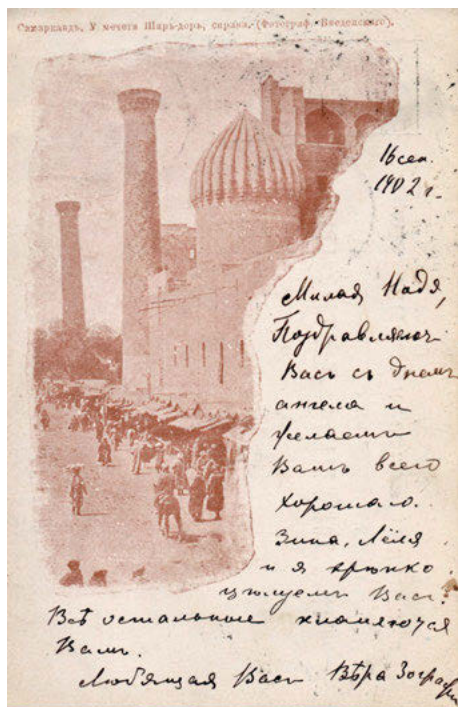 Самаркандъ. У мечети Ширъ-доръ, справа. (Фотограф. Введенскаго).
16 сен.
1902 г.
Милая Надя,
Поздравляю
Васъ съ днемъ
ангела и
желаемъ
Вамъ всего
хорошаго.
Зина, Лёля
и я крѣпко
цѣлуемъ Васъ.
Всѣ остальные кланяются
Вамъ.
Любящая Васъ Вѣра Зограф